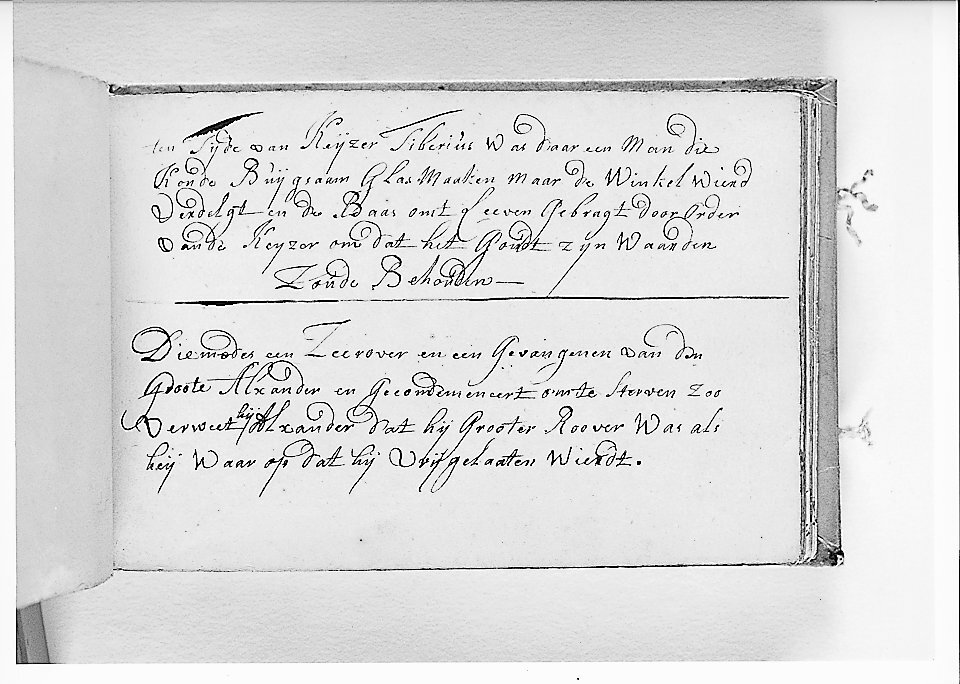 ten Tyde van Keyzer Tiberius Was daar een Man die
Konde Buygsaam Glas Maaken maar de Winkel Wierd
Verdelgt en de Baas omt Leeven Gebragt door order
van de Keyzer om dat het Goudt zyn Waarden
Zoude Behouden —
Diemedes een Zeerover en een Gevangenen van den
Groote Alxander en Gecondemeneert om te Sterven Zoo
Verweet hij Alxander dat hij Grooter Roover Was als
hij Waar op dat hij Vrijgelaaten Wierdt.